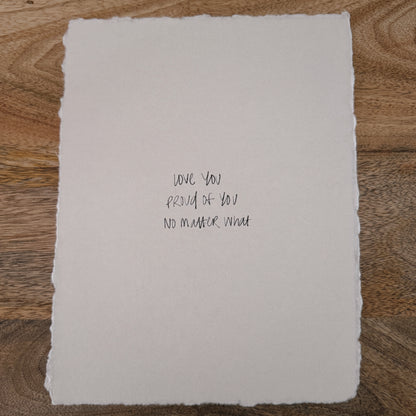 Love You
Proud of You
No matter what